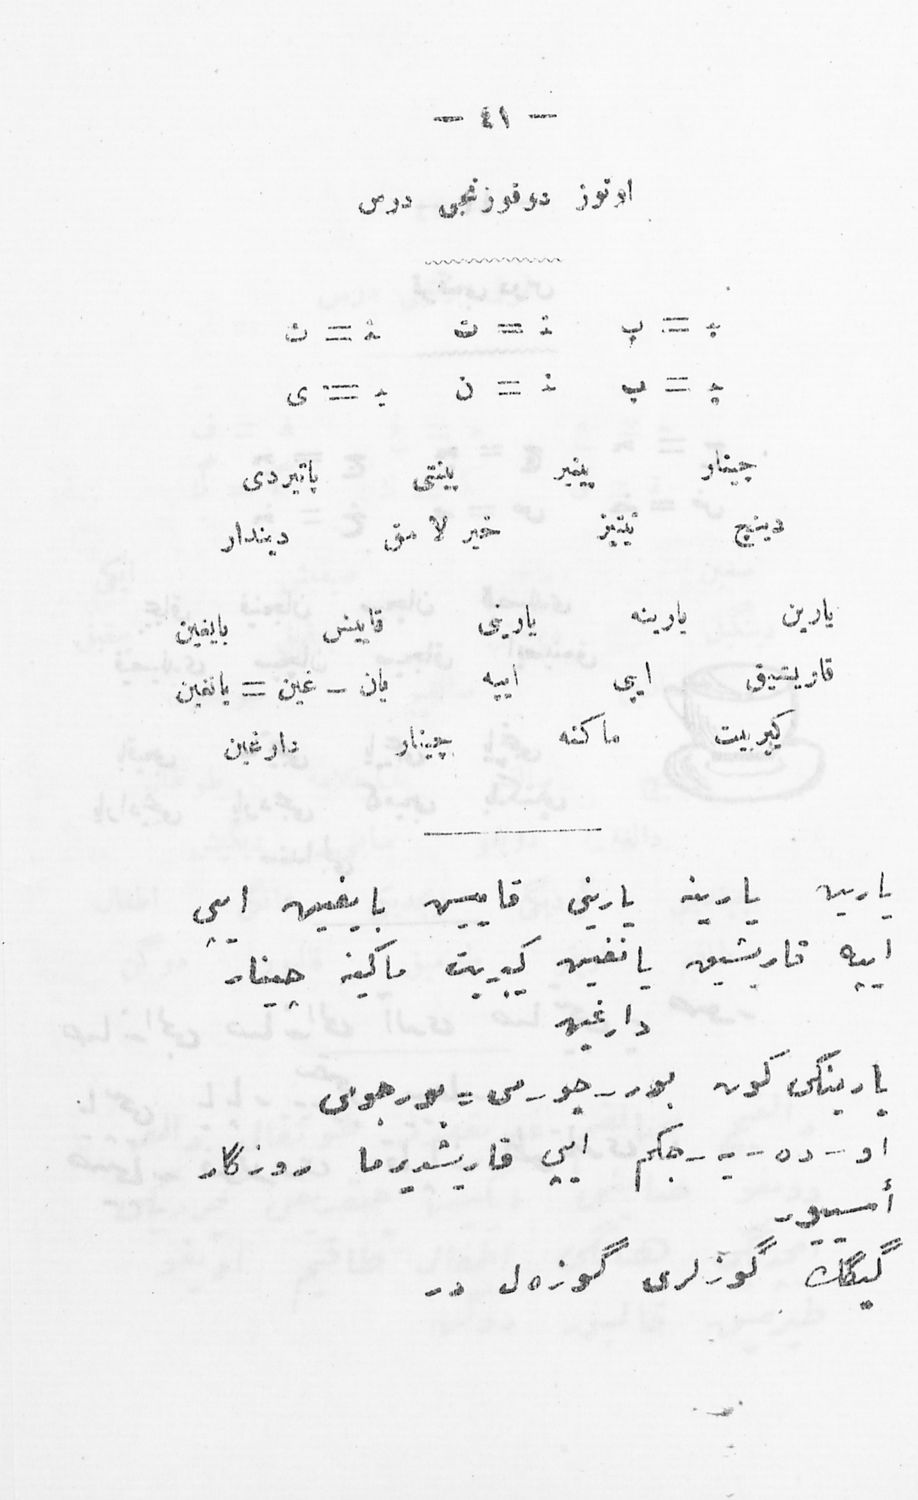 — ٤١ —
اوتوز دوقوزنجی درس
ﺑ = ب ﺗ = ت ﺛ = ث
ﭘ = پ ﻧ = ن ﻳ = ی
چینار پینیر پینتی یاتیردی
دینج تیتیز خیرلامق دیندار
یارین یارینه یارینی قاییش بایغین
قاریشیق ایپی ایپه یان – غین = یانغین
کیبریت ماکنه چینار دارغین
یارین یارینه یارینی قاییس بایغین ایپی
ایپه قاریشیق یانغین کیبریت ماکینه چینار
دارغین
یارینکی کون بور – جو – می = بورجومی
او – ده – یـ – جکم ایپی قاریشدیرما روزکار
أسییور
گیگك گوزلری گوزه‌ل در